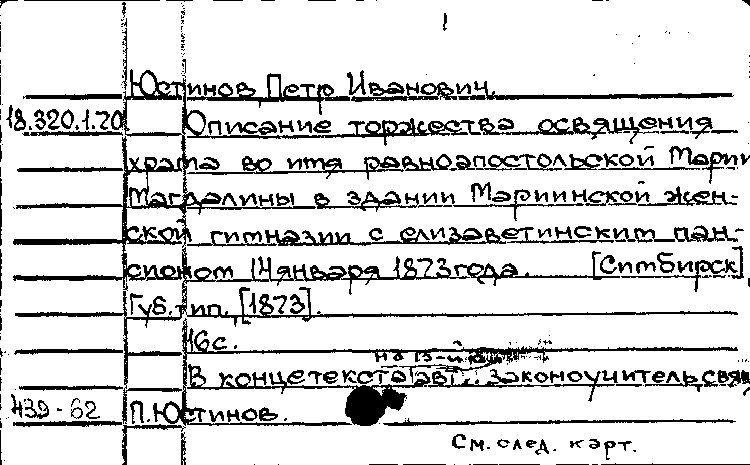 1
Юстинов, Петр Иванович.
18.320.1.20 Описание торжества освящения
храма во имя равноапостольской Марии
Магдалины в здании Мариинской жен-
ской гимназии с елизаветинским пан-
сионом 14 января 1873 года. [Симбирск],
Губ. тип. [1873].
16 с.
на 15-й
В конце текста авт.: законоучитель, свящ.
439-62 П. Юстинов.
См. след. карт.